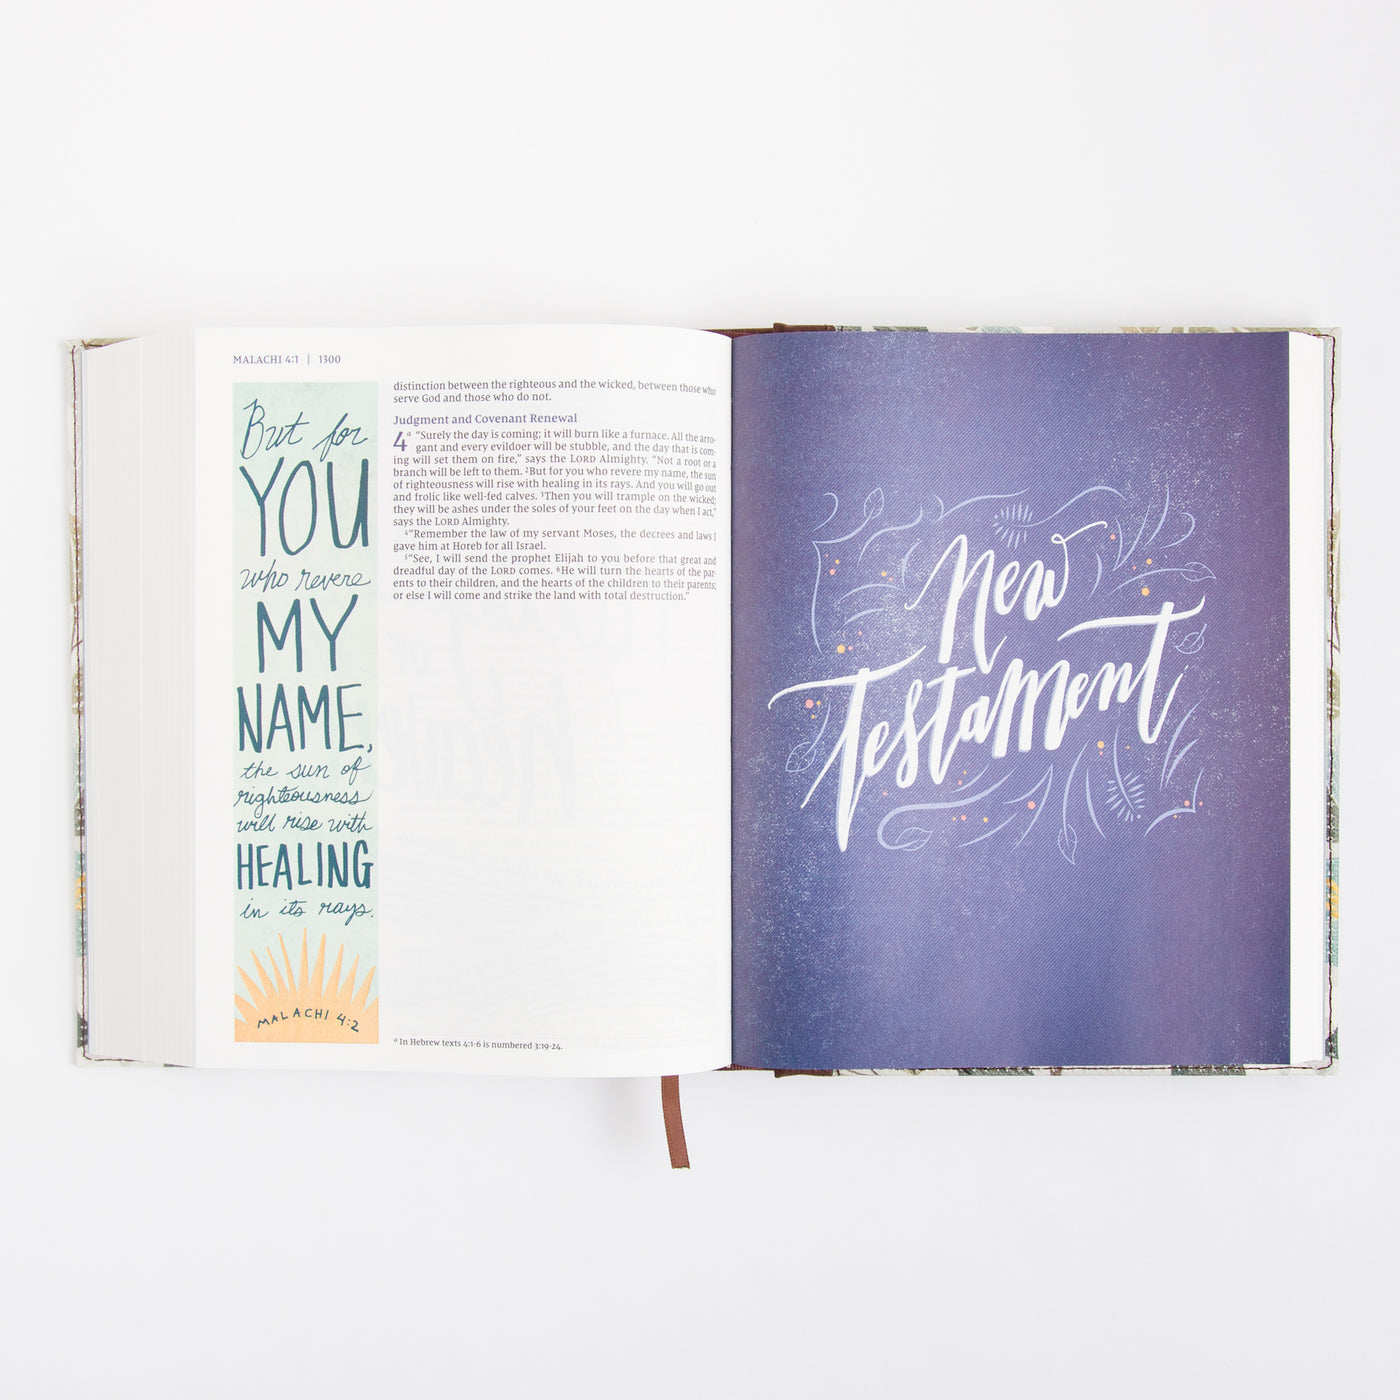 MALACHI 4:1 | 1300
But for
YOU
who revere
MY
NAME,
the sun of
righteousness
will rise with
HEALING
in its rays.
MALACHI 4:2
distinction between the righteous and the wicked, between those who
serve God and those who do not.
Judgment and Covenant Renewal
4 a “Surely the day is coming; it will burn like a furnace. All the arro-
gant and every evildoer will be stubble, and the day that is com-
ing will set them on fire,” says the LORD Almighty. “Not a root or a
branch will be left to them. 2 But for you who revere my name, the sun
of righteousness will rise with healing in its rays. And you will go out
and frolic like well-fed calves. 3 Then you will trample on the wicked;
they will be ashes under the soles of your feet on the day when I act,”
says the LORD Almighty.
4 “Remember the law of my servant Moses, the decrees and laws I
gave him at Horeb for all Israel.
5 “See, I will send the prophet Elijah to you before that great and
dreadful day of the LORD comes. 6 He will turn the hearts of the par-
ents to their children, and the hearts of the children to their parents;
or else I will come and strike the land with total destruction.”
a In Hebrew texts 4:1-6 is numbered 3:19-24.
New
Testament